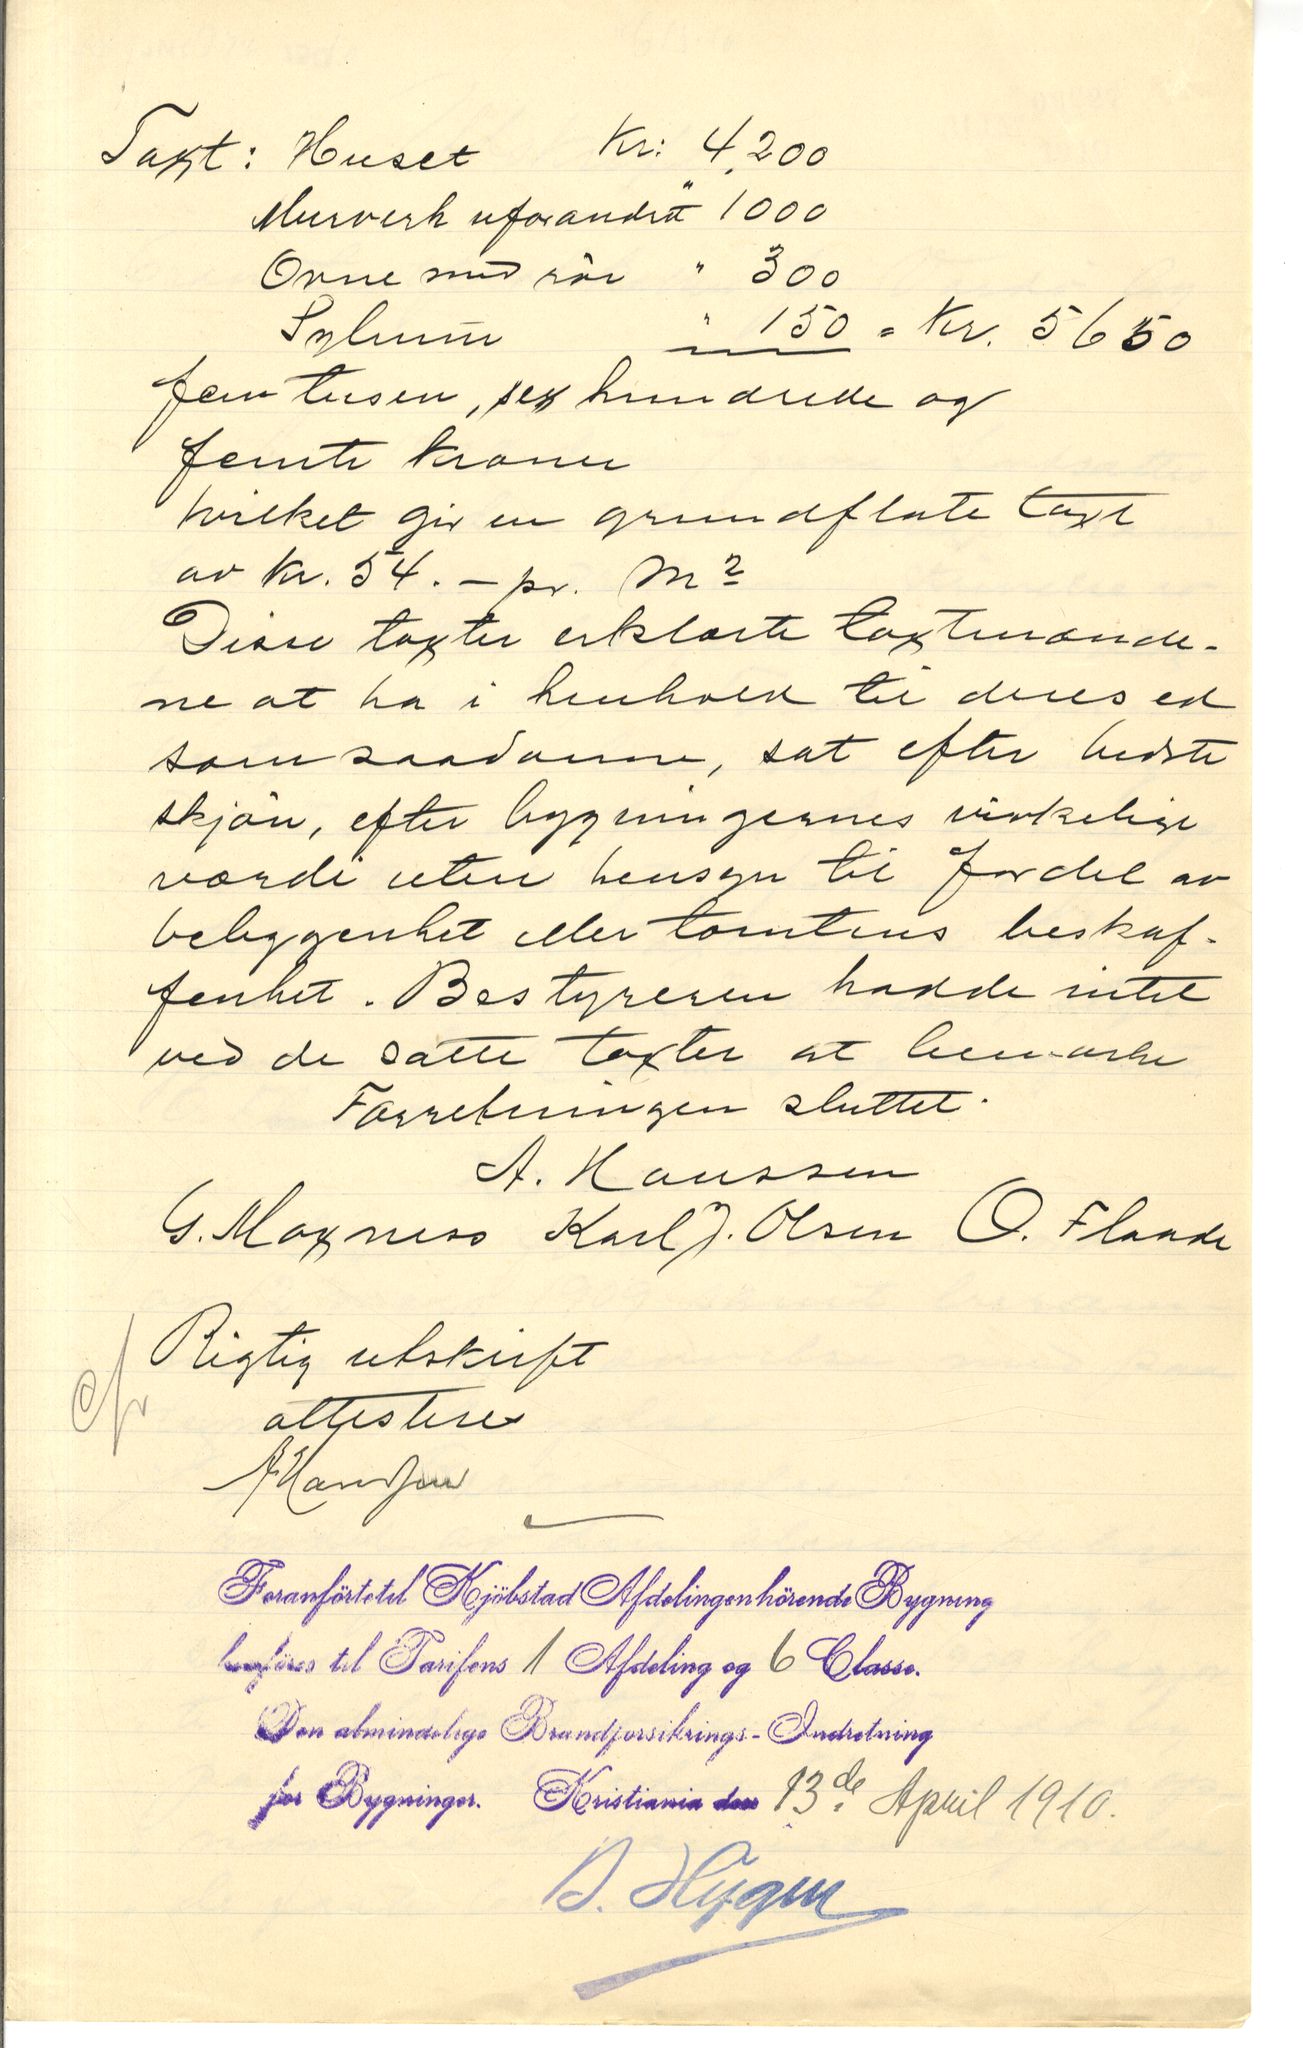 Taxt: Huset Kr: 4,200
Murverk uforandret " 1000
Ovne med rör " 300
" 150 = Kr. 5650
fem tusen, sex hundrede og
femti kroner
hvilket gir en grundflate taxt
av kr. 54. – pr. M²
Disse taxter erklærte taxtmænde-
ne at ha i henhold til deres ed
som saadanne, sat efter bedste
skjön, efter bygningernes virkelige
værdi uten hensyn til fordel av
beliggenhet eller tomtens beskaf-
fenhet. Bestyreren hadde intet
ved de satte taxter at bemerke
Forretningen sluttet.
A. Hanssen
G. Moxness Karl J. Olsen O. Flaade
Rigtig utskrift
attesteres
cfr
A Hanssen
Foranförte til Kjöbstad Afdelingen hörende Bygning
henföres til Tarifens 1 Afdeling og 6 Classe.
Den almindelige Brandforsikrings-Indretning
for Bygninger. Kristiania den 13de April 1910.
B. Hygen